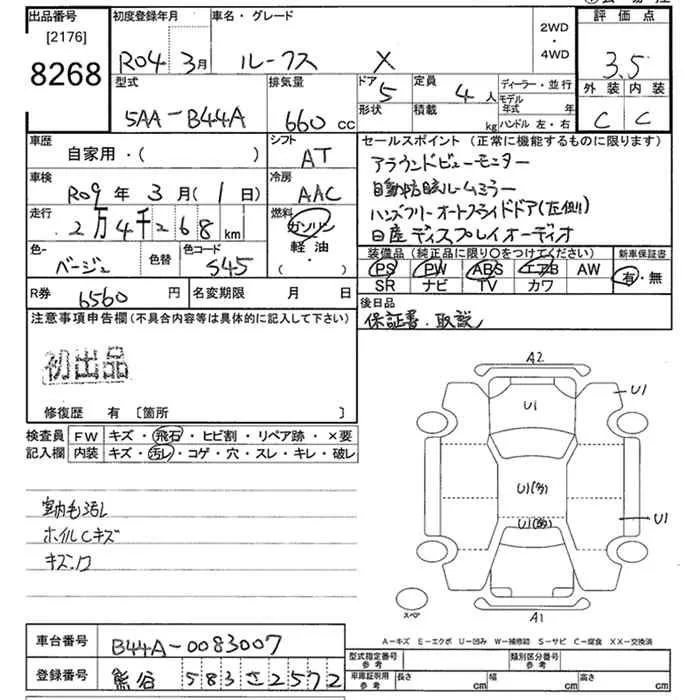 出品番号
[2176]
8268
初度登録年月
R04年 3月
車名・グレード
ルークス X
2WD
・
4WD
評価点
3.5
外装 内装
C C
型式
5AA-B44A
排気量
660 cc
ドア
5
形状
定員
4人
積載
kg
ディーラー・並行
モデル年式 年
ハンドル 左・右
車歴
自家用・( )
シフト
AT
車検
R09年 3月 (1日)
冷房
AAC
走行
2万4千268 km
燃料
ガソリン
軽油
・( )
色-
ベージュ
色替
色コード
S45
R券
6560 円
名変期限 月 日
セールスポイント(正常に機能するものに限ります)
アラウンドビューモニター
自動防眩ルームミラー
ハンズフリーオートスライドドア(左側)
日産ディスプレイオーディオ
装備品(純正品に限り〇をつけてください)
PS PW ABS エアB AW
SR ナビ TV カワ
新車保証書
有・無
後日品
保証書・取説
注意事項申告欄(不具合内容等は具体的に記入して下さい)
初出品
修復歴 有 〔箇所 〕
検査員
記入欄
FW キズ・飛石・ヒビ割・リペア跡・×要
内装 キズ・汚レ・コゲ・穴・スレ・キレ・破レ
室内も汚レ
ホイルCキズ
A2
U1
U1
U1(多)
U1
A1
スペア
A-キズ E-エクボ U-凹み W-補修跡 S-サビ C-腐食 XX-交換済
車台番号
B44A-0083007
登録番号
熊谷 583 さ 2572
型式指定番号
参考
類別区分番号
参考
車庫証明用
参考
長さ cm
幅 cm
高さ cm